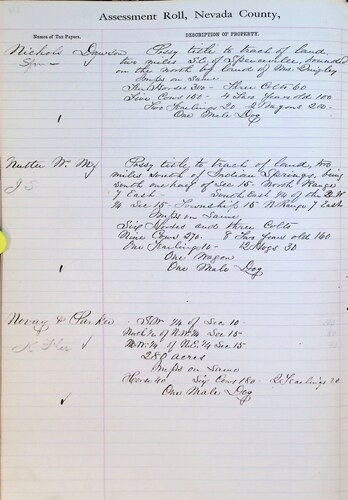 Assessment Roll, Nevada County,
Names of Tax Payers.
DESCRIPTION OF PROPERTY.
Nichols Dawson Possy title to tract of land,
two miles S.E. of Spenceville, bounded
on the north by land of Mrs. Quigley
Imps on Same
Horses 300 - Three Colts 60
Five Cows 150 - 4 Two Years old 100
Two Yearlings 20 - 2 Wagons
One Male Dog
Nutter W. My Possy title to tract of land, two
J S miles South of Indian Springs, being
South one half of Sec 15 - North Range
7 East - South East 1/4 of the
1/4 Sec 15 - Township 15 N Range 7 East
Imps on Same
Six Horses and three Colts
Nine Cows 270 - 8 Two Years old 160
One Yearling 10 - 12 Hogs 30
One Wagon
One Male Dog
& Parker - S.W. 1/4 of Sec 10 -
North 1/2 of N.W. 1/4 Sec 15 -
N.W. 1/4 of N.E. 1/4 Sec 15
280 acres
Imps on Same
Horse 40 Six Cows 180 - 2 Yearlings 20
One Male Dog